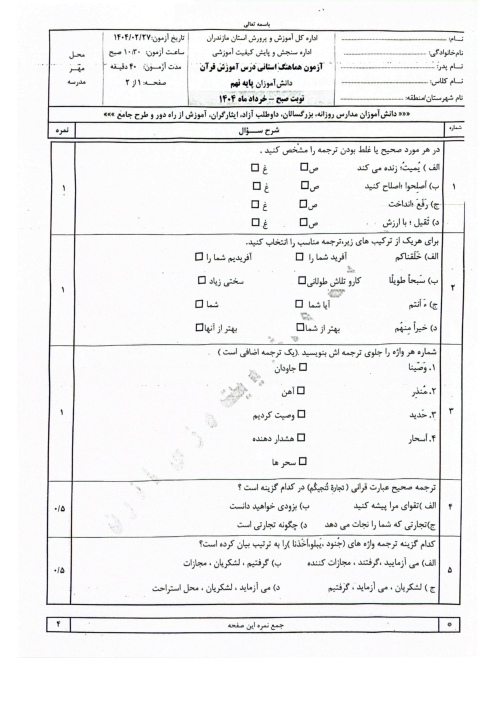 باسمه تعالی
نـــام:
نام‌خانوادگی:
نـام پدر:
نـام کلاس:
نام شهرستان/منطقه:
اداره کل آموزش و پرورش استان مازندران
اداره سنجش و پایش کیفیت آموزشی
آزمون هماهنگ استانی درس آموزش قرآن
دانش‌آموزان پایه نهم
نوبت صبح – خرداد ماه ۱۴۰۴
تاریخ آزمون: ۱۴۰۴/۰۲/۲۷
ساعت آزمون: ۱۰:۳۰ صبح
مدت آزمـون: ۴۰ دقیقه
صفحـه: ۱ از ۲
محـل
مهـر
مدرسه
««« دانش‌آموزان مدارس روزانه، بزرگسالان، داوطلب آزاد، ایثارگران، آموزش از راه دور و طرح جامع »»»
شماره
شرح ســؤال
نمره
۱
در هر مورد صحیح یا غلط بودن ترجمه را مشخص کنید .
الف ) یُمیتُ؛ زنده می کند ص غ
ب) أصلِحوا ؛اصلاح کنید ص غ
ج) رَفَعَ ؛انداخت ص غ
د) ثَقیل ؛ با ارزش ص غ
۱
۲
برای هریک از ترکیب های زیر،ترجمه مناسب را انتخاب کنید.
الف) خَلَقناکم آفرید شما را آفریدیم شما را
ب) سَبحاً طویلًا کارو تلاش طولانی سختی زیاد
ج) ءَ اَنتم آیا شما شما
د) خیراً مِنهُم بهتر از شما بهتر از آنها
۱
۳
شماره هر واژه را جلوی ترجمه اش بنویسید .(یک ترجمه اضافی است )
۱. وَصَّینا جاودان
۲. مُنذِر آهن
۳. حَدید وصیت کردیم
۴. أسحار هشدار دهنده
سحر ها
۱
۴
ترجمه صحیح عبارت قرانی ( تجارة تُنجیکُم) در کدام گزینه است ؟
الف )تقوای مرا پیشه کنید ب) بزودی خواهید دانست
ج)تجارتی که شما را نجات می دهد د) چگونه تجارتی است
۰/۵
۵
کدام گزینه ترجمه واژه های (جُنود ،یَبلو،أخَذنا )را به ترتیب بیان کرده است؟
الف) می آزمایید ،گرفتند ، مجازات کننده ب) گرفتیم ، لشکریان ، مجازات
ج ) لشکریان ، می آزماید ، گرفتیم د) می آزماید ، لشکریان ، محل استراحت
۰/۵
جمع نمره این صفحه
۴